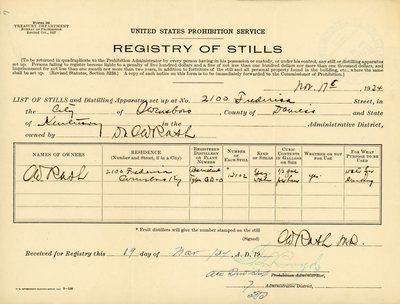 FORM 26
TREASURY DEPARTMENT
BUREAU OF PROHIBITION
UNITED STATES PROHIBITION SERVICE
REGISTRY OF STILLS
[To be rendered in quadruplicate to the Prohibition Administrator by every person having in his possession or custody, or under his control, any still or distilling apparatus
set up. Persons failing to register become liable to a penalty of five hundred dollars and a fine of not less than one hundred dollars nor more than one thousand dollars, and
imprisonment for not less than one month nor more than two years, in addition to forfeiture of the still and all personal property found in the building, etc., where the same
shall be set up. (Revised Statutes, Section 3258.) A copy of each notice on this form is to be immediately forwarded to the Commissioner of Prohibition.]
Nov. 17th, 1934
LIST OF STILLS and Distilling Apparatus set up at No. 2100 Frederica Street, in
the City of Owensboro, County of Daviess and State
of Kentucky in the Administrative District,
owned by Dr CW Rash
NAMES OF OWNERS RESIDENCE (Number and Street, if in a City) REGISTERED DISTILLERY OR PLANT NUMBER NUMBER OF EACH STILL KIND OF STILLS CUBIC CONTENTS IN GALLONS OR SIZE WHETHER OR NOT FOR USE FOR WHAT PURPOSE TO BE USED
CW Rash 2100 Frederica Owensboro Ky yes
* Fruit distillers will give the number stamped on the still
(Signed) CW Rash M.D.
Received for Registry this 19 day of Nov 1934, A. D. 19
Prohibition Administrator,
Administrative District,